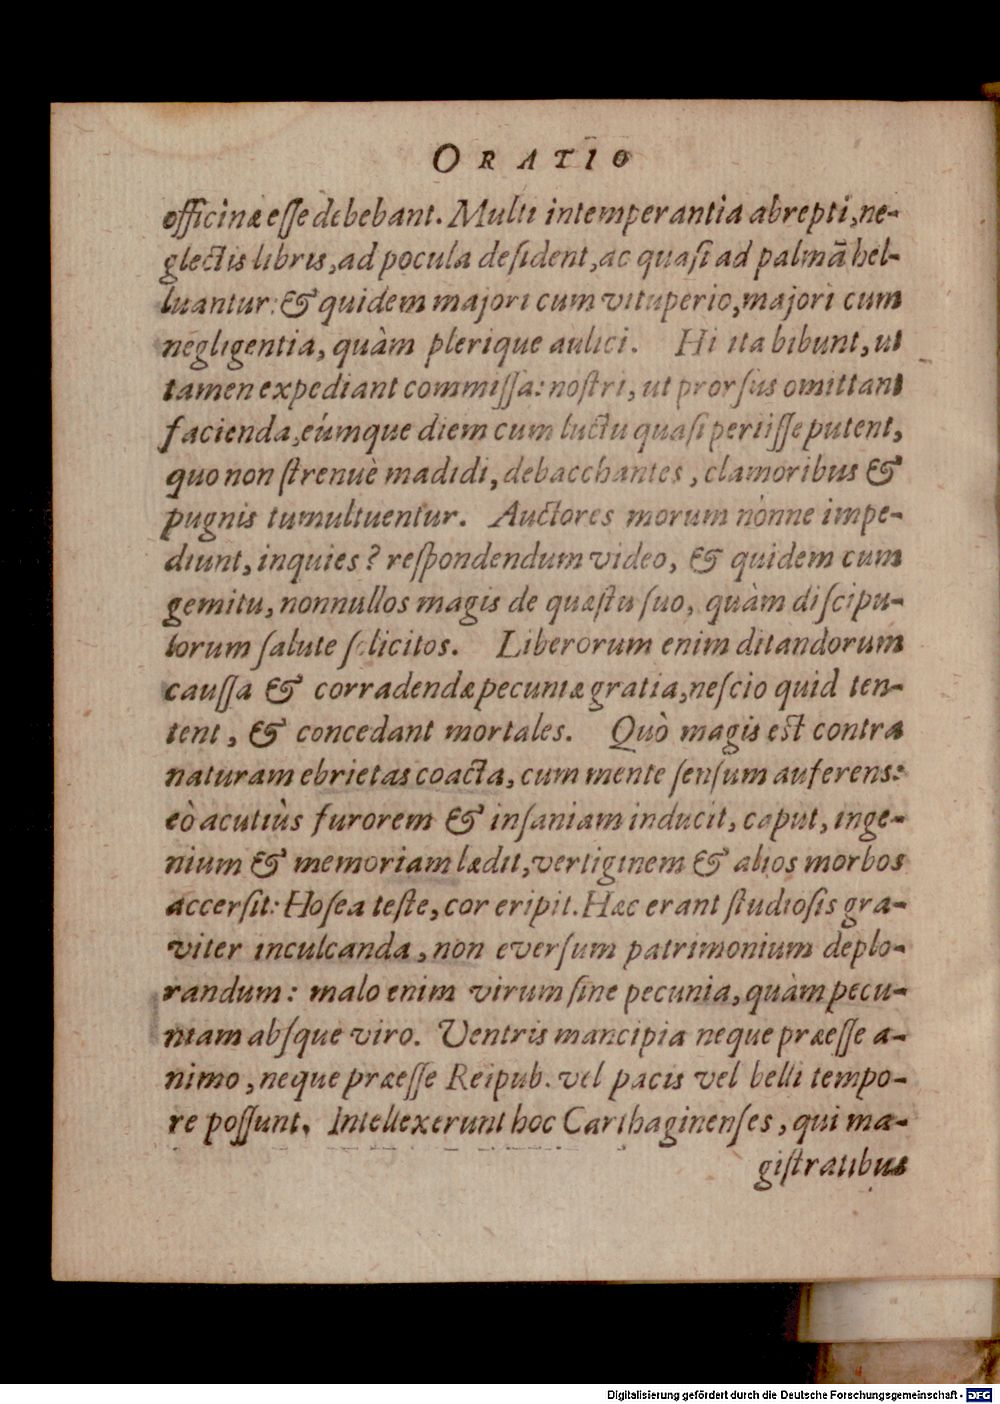 ORATIO
officinæ esse debebant. Multi intemperantia abrepti, ne-
glectis libris, ad pocula desident, ac quasi ad palmā hel-
luantur: & quidem majori cum vituperio, majori cum
negligentia, quàm plerique aulici. Hi ita bibunt, ut
tamen expediant commissa: nostri, ut prorsus omittant
facienda, eúmque diem cum luctu quasi periisse putent,
quo non strenuè madidi, debacchantes, clamoribus &
pugnis tumultuentur. Auctores morum nónne impe-
diunt, inquies? respondendum video, & quidem cum
gemitu, nonnullos magis de quæstu suo, quàm discipu-
lorum salute solicitos. Liberorum enim ditandorum
caussa & corradendæ pecuniæ gratia, nescio quid ten-
tent, & concedant mortales. Quò magis est contra
naturam ebrietas coacta, cum mente sensum auferens:
eò acutiùs furorem & insaniam inducit, caput, inge-
nium & memoriam lædit, vertiginem & alios morbos
accersit: Hosea teste, cor eripit. Hæc erant studiosis gra-
viter inculcanda, non eversum patrimonium deplo-
randum: malo enim virum sine pecunia, quàm pecu-
niam absque viro. Ventris mancipia neque præesse a-
nimo, neque præesse Reipub. vel pacis vel belli tempo-
re possunt. Intellexerunt hoc Carthaginenses, qui ma-
gistratibus
Digitalisierung gefördert durch die Deutsche Forschungsgemeinschaft - DFG